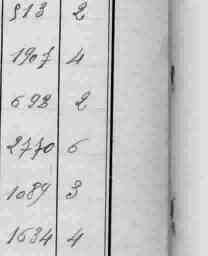 513 2
1907 4
698 2
2770 6
1089 3
1634 4